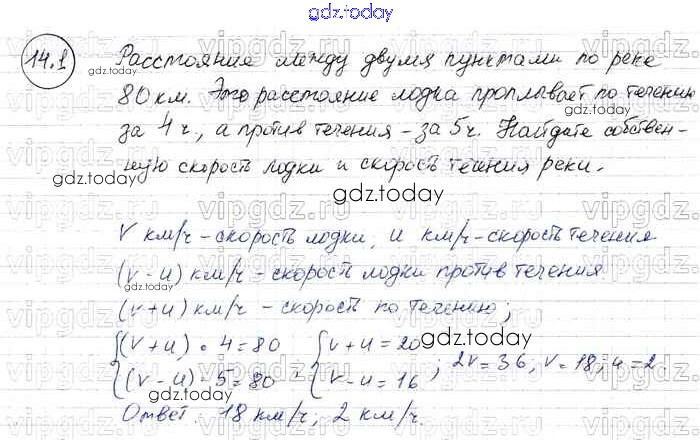 gdz.today
14.1 Расстояние между двумя пунктами по реке
80 км. Это расстояние лодка проплывает по течению
за 4 ч., а против течения - за 5 ч. Найдите собствен-
ную скорость лодки и скорость течения реки.
V км/ч - скорость лодки, u км/ч - скорость течения
(v - u) км/ч - скорость лодки против течения
(v + u) км/ч - скорость по течению;
{(v + u) · 4 = 80 {v + u = 20
{(v - u) · 5 = 80 {v - u = 16 ; 2v = 36; v = 18; u = 2.
Ответ: 18 км/ч; 2 км/ч.